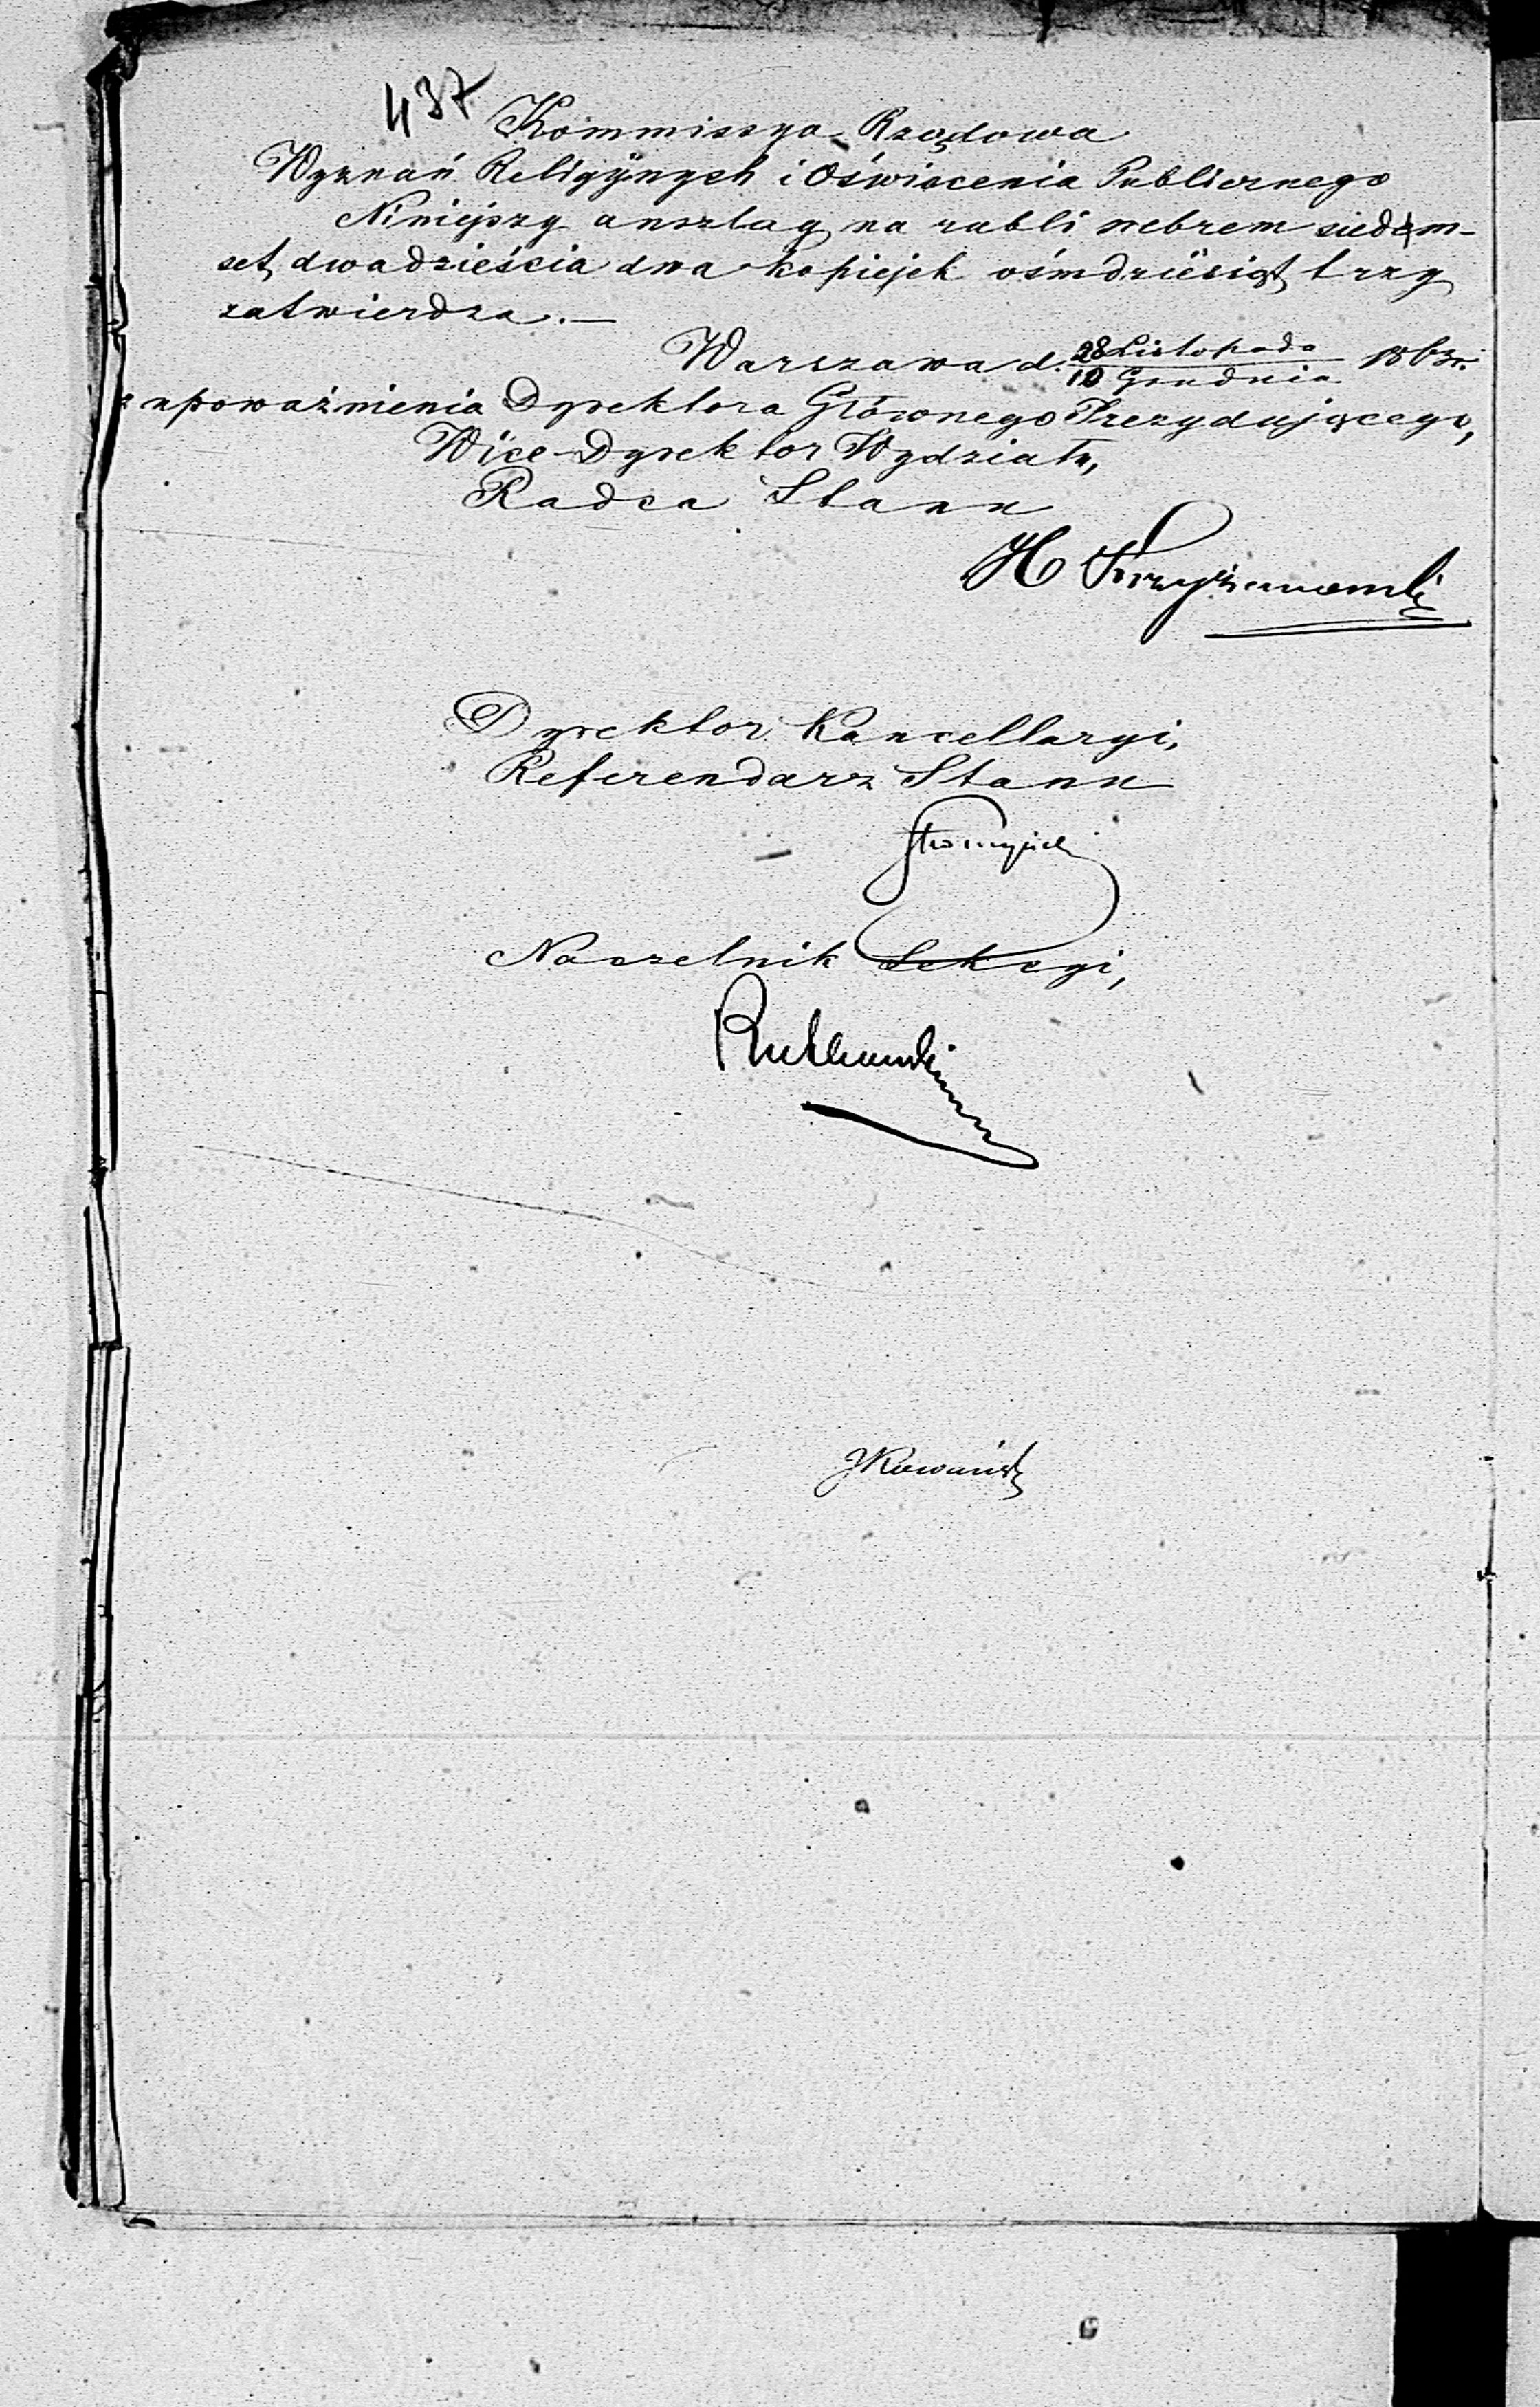 437
Kommissya Rządowa
Wyznań Religijnych i Oświecenia Publicznego
Niniejszy anszlag na rubli srebrem siedem-
set dwadzieścia dwa kopiejek ośmdziesiąt trzy
zatwierdza. —
Warszawa d. 28 Listopada / 10 Grudnia 1863 r.
z upoważnienia Dyrektora Głównego Prezydującego,
Wice-Dyrektor Wydziału,
Radca Stanu
H Krzyżanowski
Dyrektor Kancellaryi,
Referendarz Stanu
Naczelnik Sekcyi,
Rutkowski